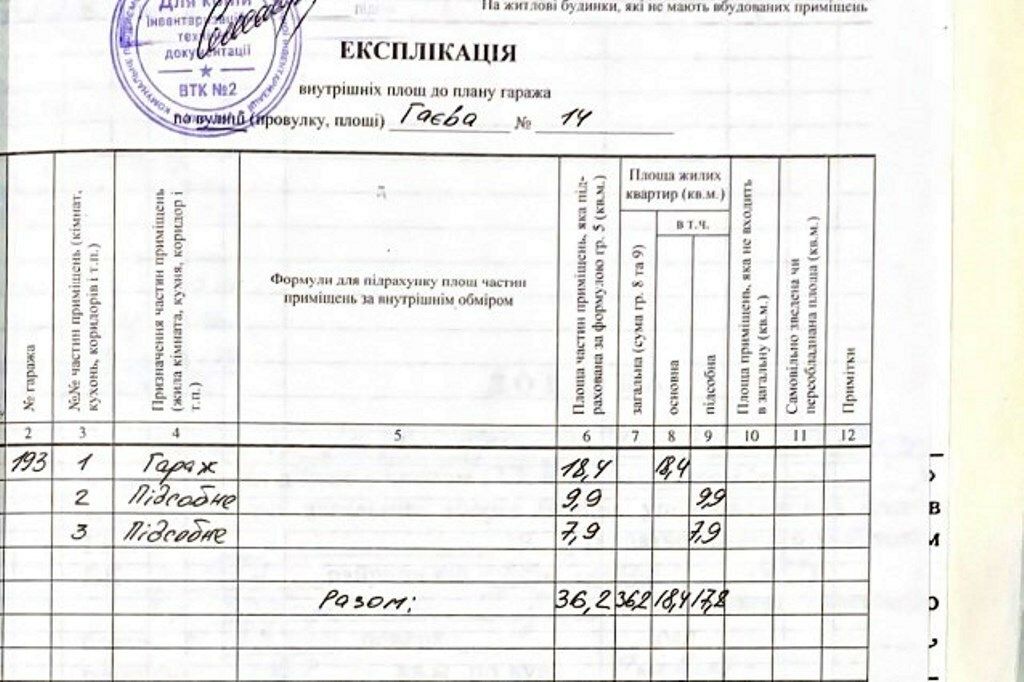 На житлові будинки, які не мають вбудованих приміщень
Для копій
Інвентаризаці
техн
документації
ВТК №2
ЕКСПЛІКАЦІЯ
внутрішніх площ до плану гаража
по вулиці (провулку, площі) Гаєва № 14
№ гаража
№№ частин приміщень (кімнат, кухонь, коридорів і т.п.)
Призначення частин приміщень (жила кімната, кухня, коридор і т.п.)
Формули для підрахунку площ частин
приміщень за внутрішнім обміром
Площа частин приміщень, яка під-
рахована за формулою гр. 5 (кв.м.)
Площа жилих
квартир (кв.м.)
загальна (сума гр. 8 та 9)
в т.ч.
основна
підсобна
Площа приміщень, яка не входить
в загальну (кв.м.)
Самовільно зведена чи
переобладнана площа (кв.м.)
Примітки
2 3 4 5 6 7 8 9 10 11 12
193 1 Гараж 18,4 18,4
2 Підсобне 9,9 9,9
3 Підсобне 7,9 7,9
Разом: 36,2 36,2 18,4 17,8